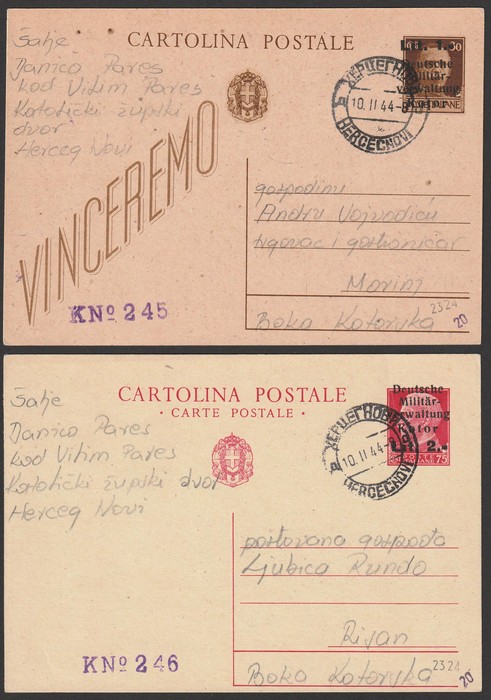 Šalje
Danica Pares
kod Vitim Pares
Katolički župski
dvor
Herceg Novi
CARTOLINA POSTALE
Lit. 1.-
Deutsche
Militär-
verwaltung
Kotor
30
ХЕРЦЕГНОВИ
Б
10. II 44-8
HERCEGNOVI
VINCEREMO
gospodinu
Andru Vojvodiću
trgovac i gostioničar
Morinj
Boka Kotorska
2324
20
KNº 245
Šalje
Danica Pares
kod Vitim Pares
Katolički župski dvor
Herceg Novi
CARTOLINA POSTALE
· CARTE POSTALE ·
Deutsche
Militär-
verwaltung
Kotor
Lit. 2.-
75
ХЕРЦЕГНОВИ
10. II 44-8
HERCEGNOVI
poštovana gospođa
Ljubica Rundo
Risan
Boka Kotorska
2324
20
KNº 246